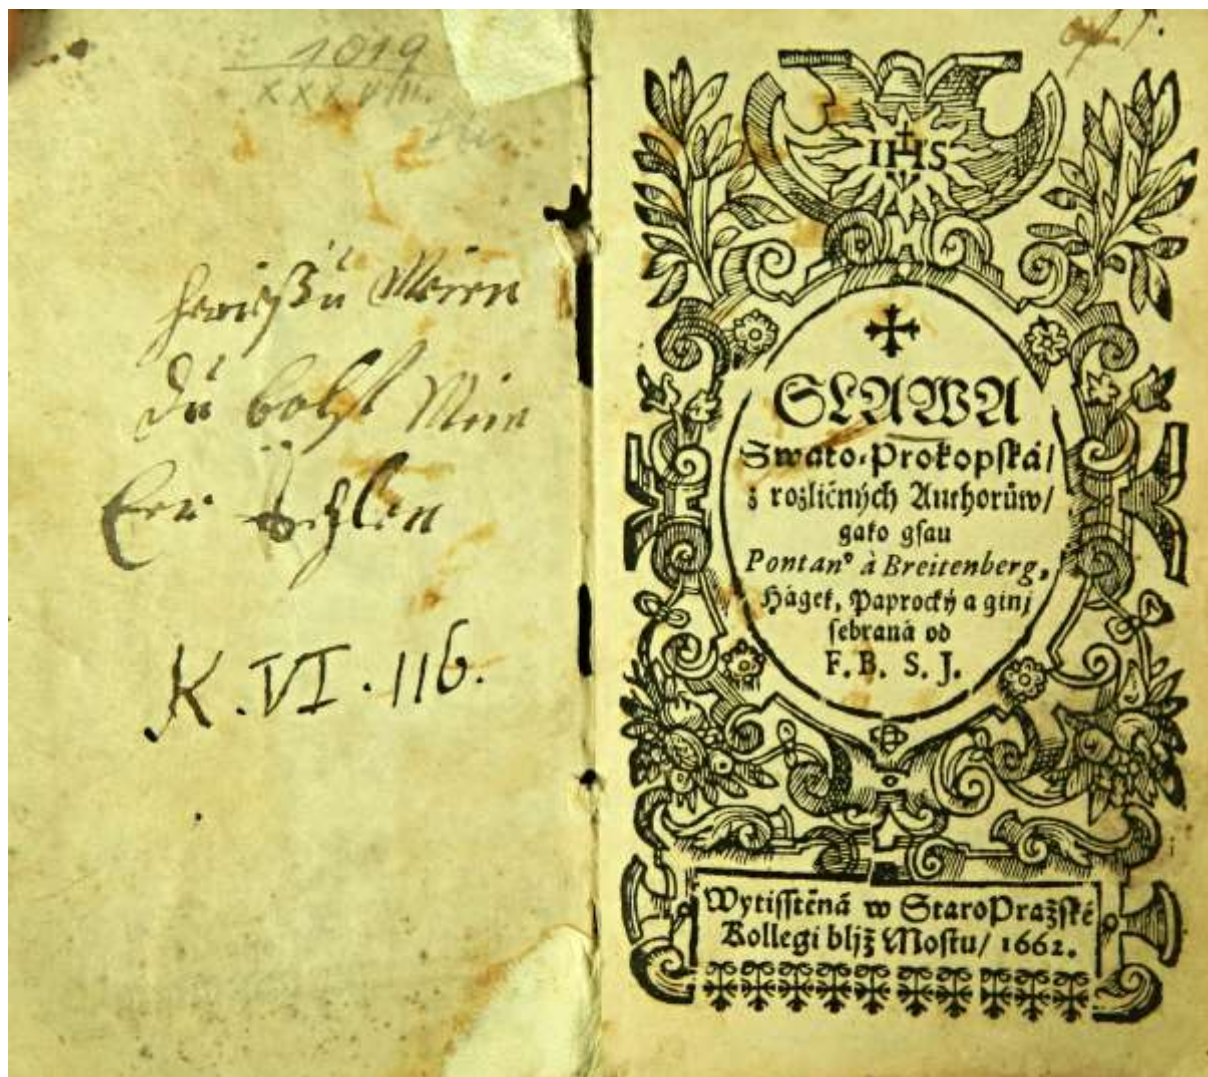 1019
XXXVIII.
Du
K.VI.116.
IHS
SLAWA
Swato-Prokopſká/
z rozličných Authorůw/
gako gſau
Pontan⁹ à Breitenberg,
Hágek, Paprocký a ginj
ſebraná od
F. B. S. J.
Wytiſſtěná w StaroPražſké
Kollegi bljž Moſtu/ 1662.